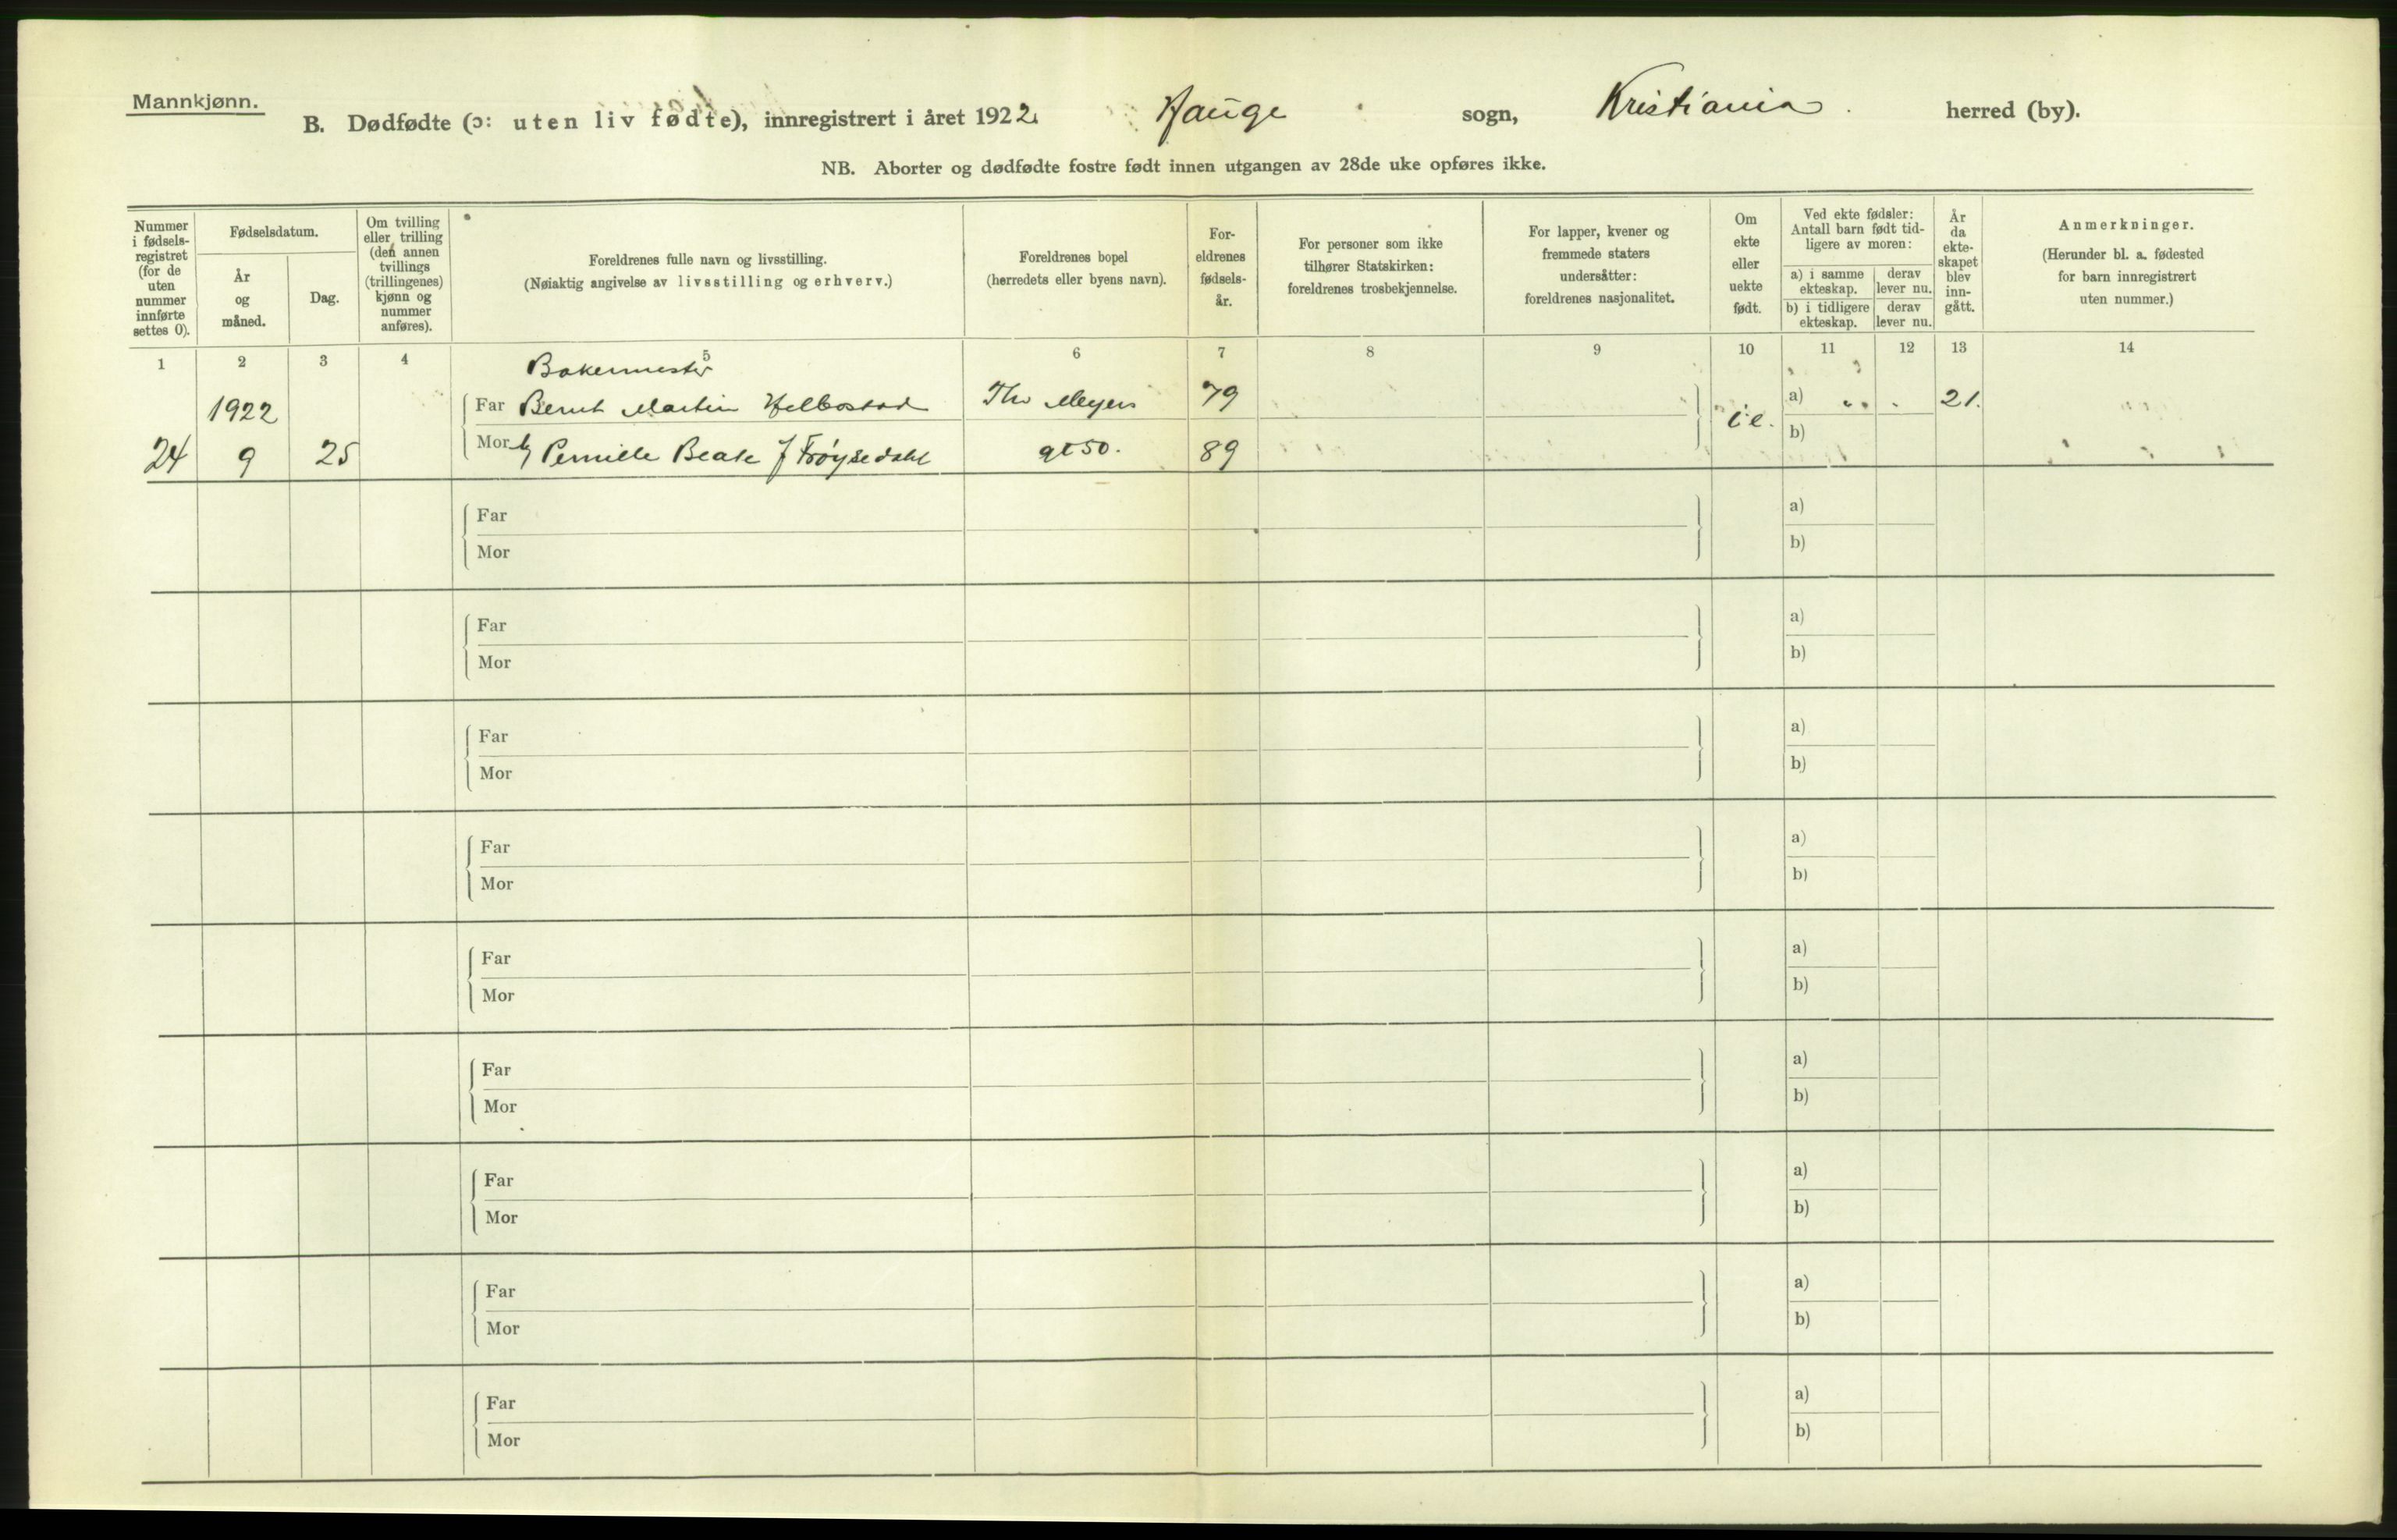 Mannkjønn.
B. Dødfødte (ɔ: uten liv fødte), innregistrert i året 1922 Hauge sogn, Kristiania herred (by).
NB. Aborter og dødfødte fostre født innen utgangen av 28de uke opføres ikke.
Nummer i fødsels-registret (for de uten nummer innførte settes 0).
Fødselsdatum.
År og måned.
Dag.
Om tvilling eller trilling (den annen tvillings (trillingenes) kjønn og nummer anføres).
Foreldrenes fulle navn og livsstilling.
(Nøiaktig angivelse av livsstilling og erhverv.)
Foreldrenes bopel
(herredets eller byens navn).
For-eldrenes fødsels-år.
For personer som ikke tilhører Statskirken: foreldrenes trosbekjennelse.
For lapper, kvener og fremmede staters undersåtter: foreldrenes nasjonalitet.
Om ekte eller uekte født.
Ved ekte fødsler: Antall barn født tid-ligere av moren:
a) i samme ekteskap. derav lever nu.
b) i tidligere ekteskap. derav lever nu.
År da ekte-skapet blev inn-gått.
Anmerkninger.
(Herunder bl. a. fødested for barn innregistrert uten nummer.)
1 2 3 4 5 6 7 8 9 10 11 12 13 14
Bakermester
1922 Far Bernt Martin Helbostad Thv Meyers 79 a) 21.
24 9 25 Mor Pernille Beate f Frøysedahl gt 50. 89 i e. b)
Far a)
Mor b)
Far a)
Mor b)
Far a)
Mor b)
Far a)
Mor b)
Far a)
Mor b)
Far a)
Mor b)
Far a)
Mor b)
Far a)
Mor b)
Far a)
Mor b)